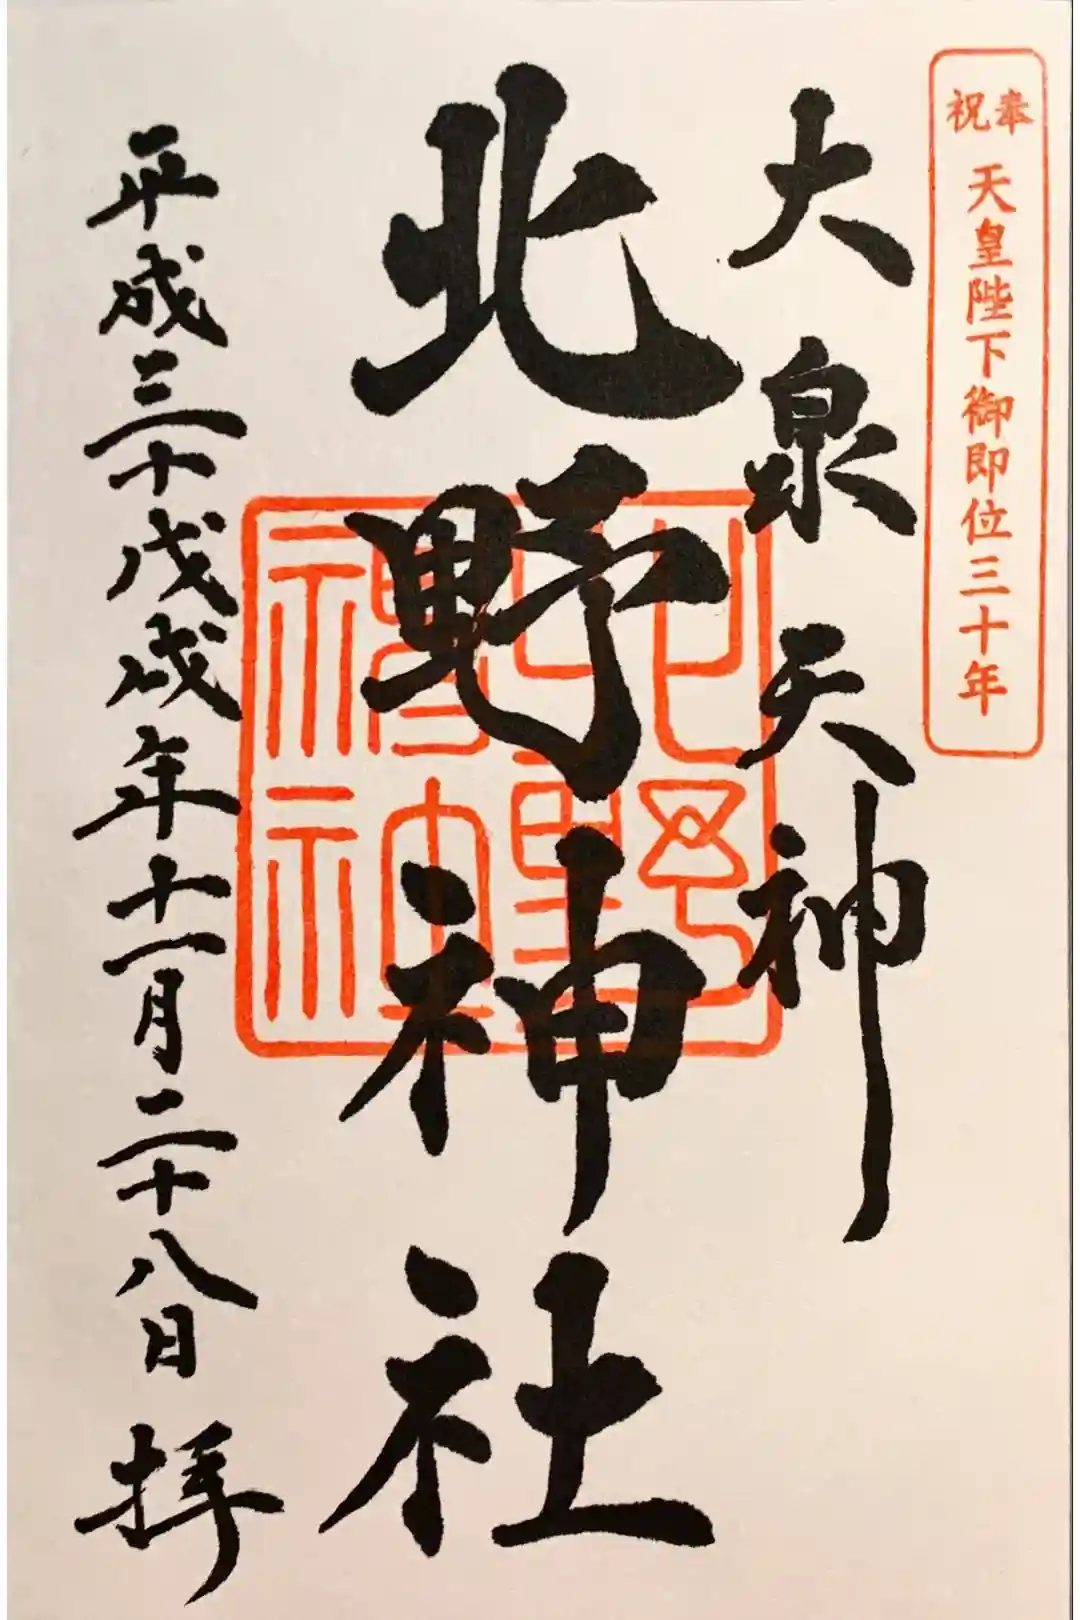 奉祝
天皇陛下御即位三十年
大泉天神
北野神社
北野神社
平成三十戊戌年十一月二十八日 拝